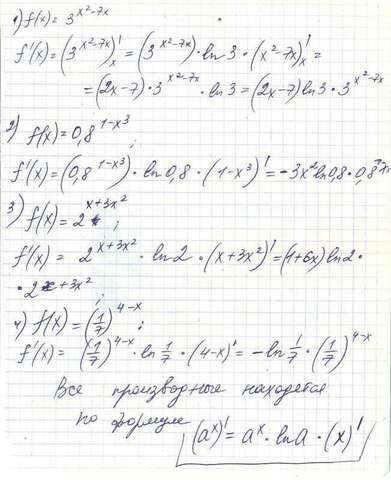 1) f(x) = 3^{x²-7x}
f'(x) = (3^{x²-7x})'ₓ = (3^{x²-7x}) · ln 3 · (x²-7x)'ₓ =
= (2x-7) · 3^{x²-7x} · ln 3 = (2x-7) ln 3 · 3^{x²-7x}
2) f(x) = 0,8^{1-x³};
f'(x) = (0,8^{1-x³}) · ln 0,8 · (1-x³)' = -3x² ln 0,8 · 0,8
3) f(x) = 2^{x+3x²};
f'(x) = 2^{x+3x²} · ln 2 · (x+3x²)' = (1+6x) ln 2 ·
· 2^{x+3x²};
4) f(x) = (1/7)^{4-x};
f'(x) = (1/7)^{4-x} · ln 1/7 · (4-x)' = -ln 1/7 · (1/7)^{4-x}
Все производные находятся
по формуле
(aˣ)' = aˣ · ln a · (x)'